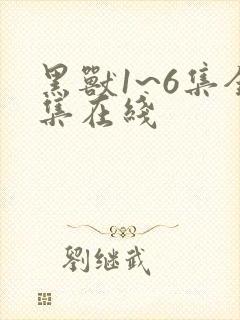 黑獸1~6集全
集在綫
劉继武